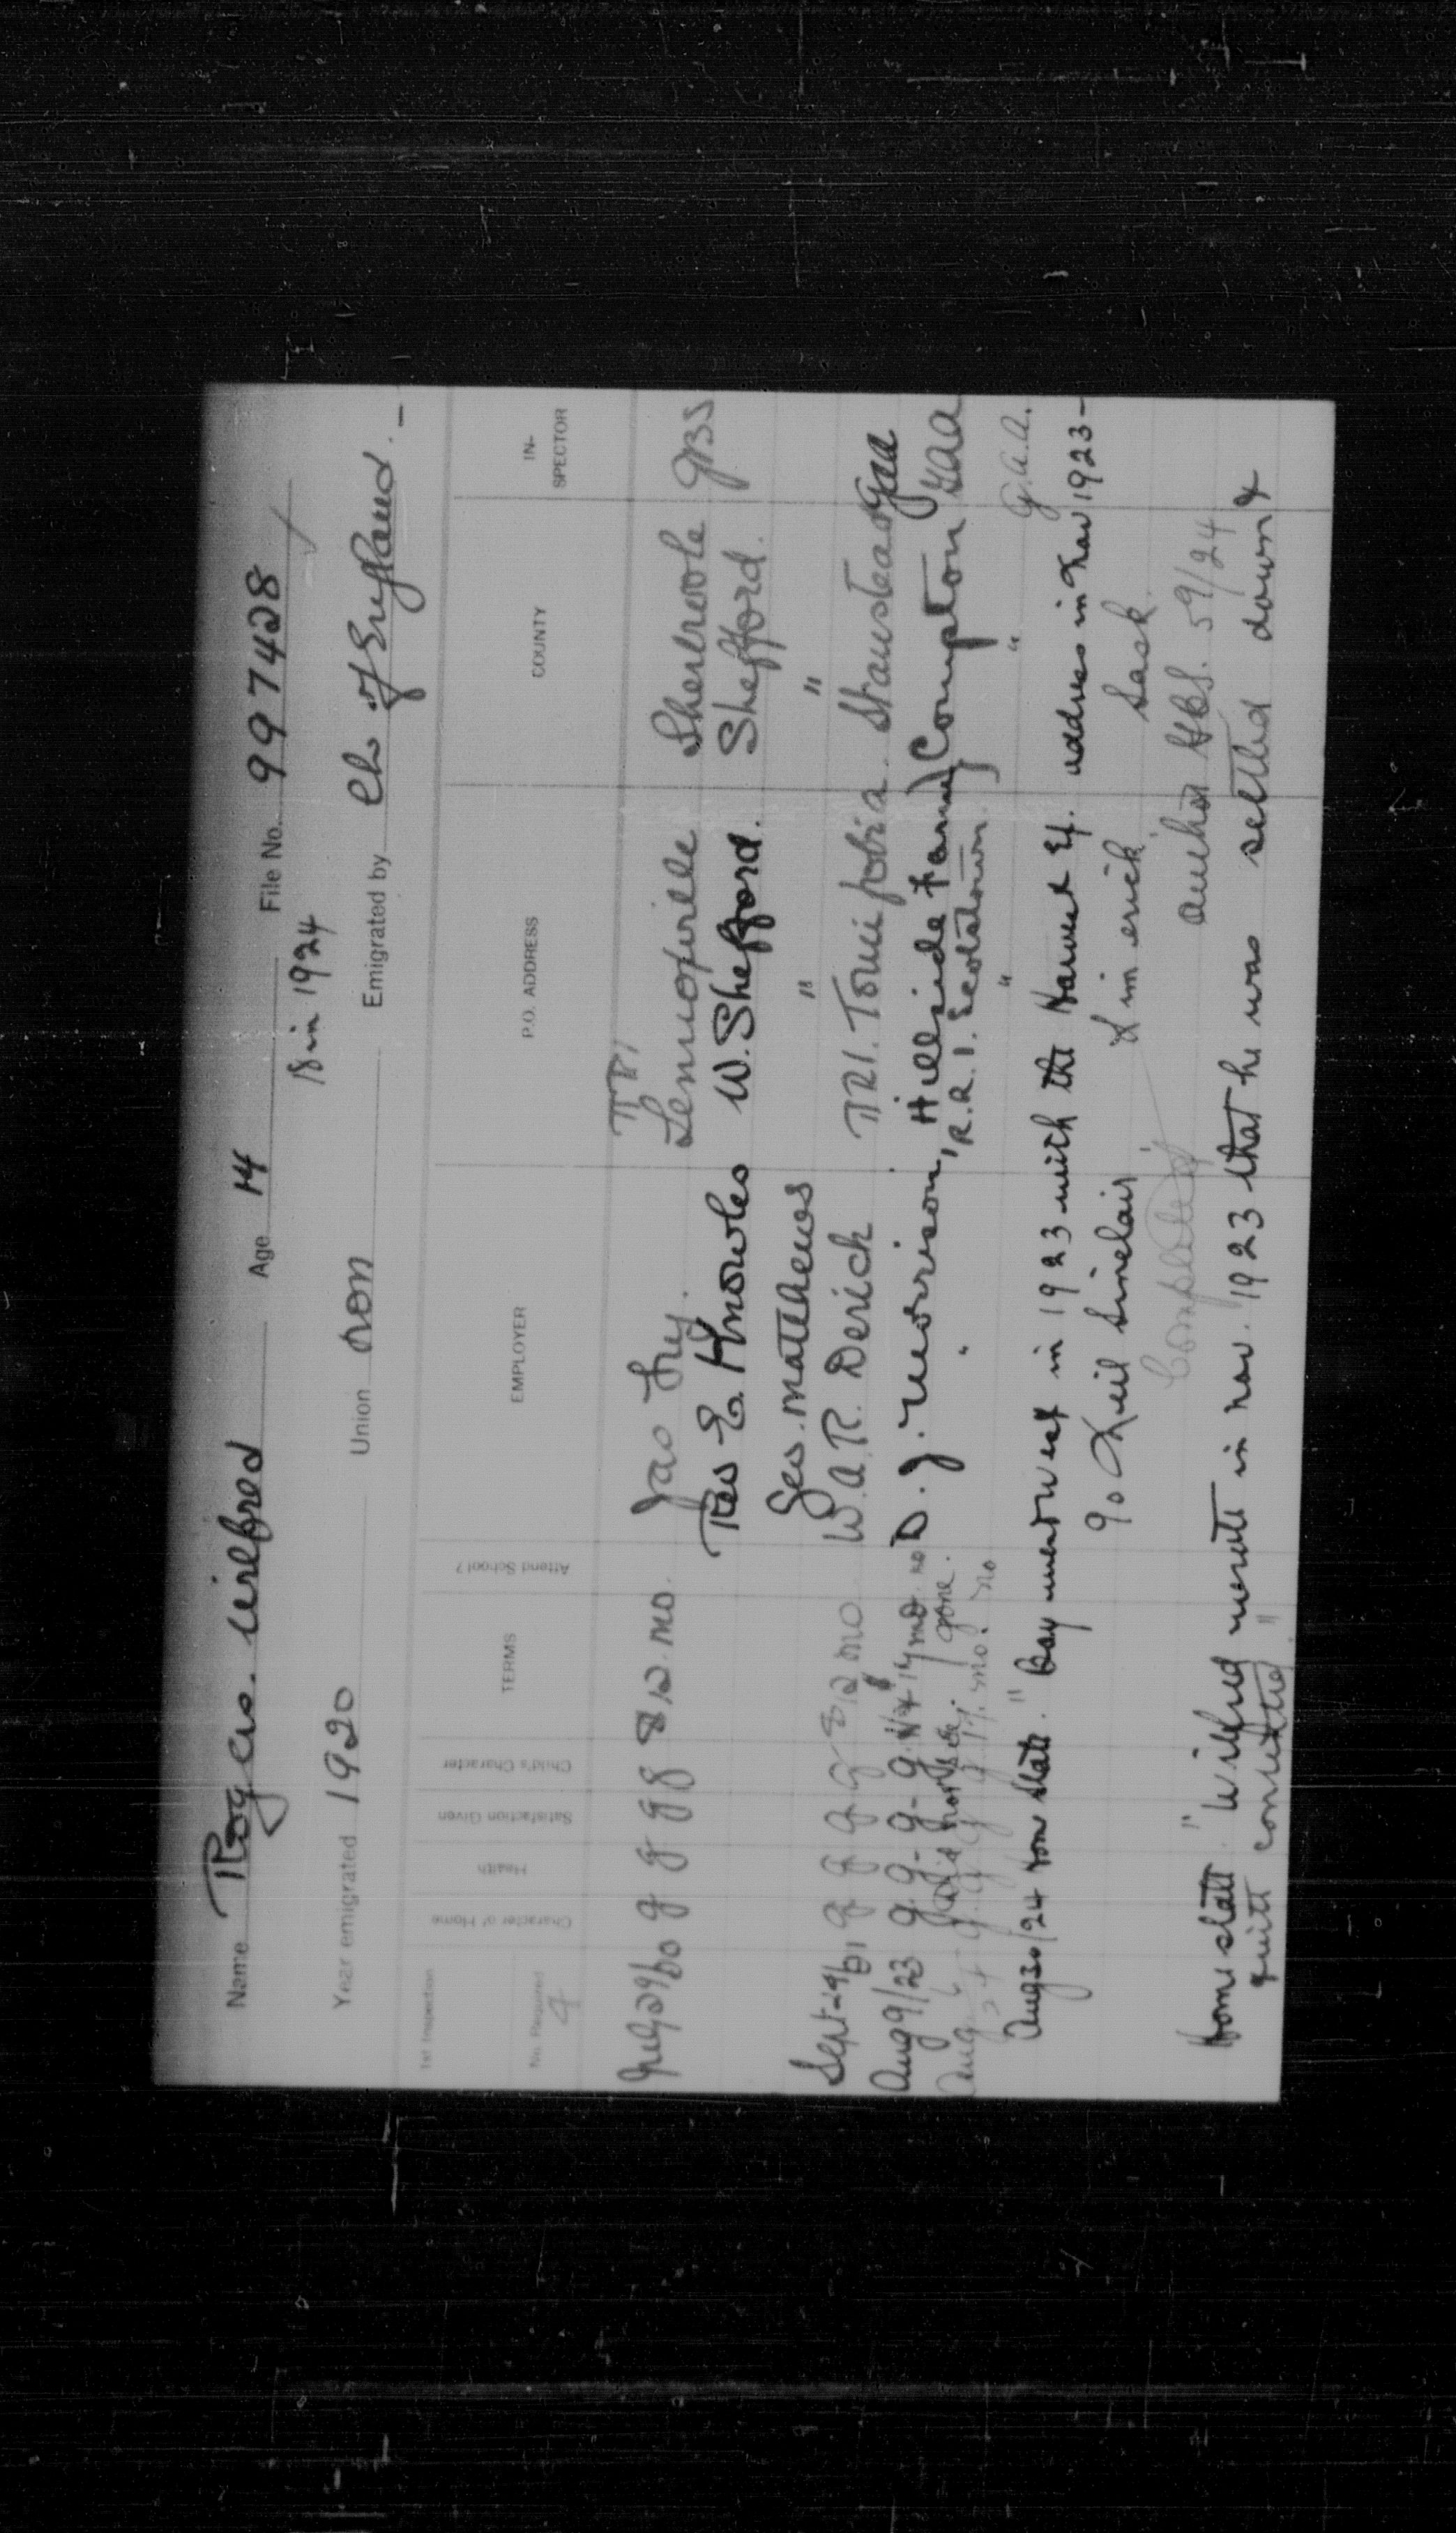 Name Rogers. Wilfred Age 14 File No. 997428
18 in 1924
Year emigrated 1920 Union non Emigrated by Ch of England. —
1st Inspection
No. Required Character of Home Health Satisfaction Given Child's Character TERMS Attend School? EMPLOYER P.O. ADDRESS COUNTY IN-SPECTOR
4
RR1
July 29/20 g g g g 8 12. mo. Jas Fry. Lennoxville Sherbrooke GBS
Rev E. Knowles W. Shefford. Shefford.
Geo. Matthews " "
Sept-9/21 g g g g 8 12 mo W.A.R. Derick RR1. Tomifobia. Stanstead GAA
Aug 9/23 g. g- g- g. 17 mo. no D. J. Morrison, Hillside Farm) Compton GAA
gone. R.R. 1. Scotstown )
Aug g g g g 17. mo. no " " " G.A.A.
Aug 20/24 Hom state. " Boy went West in 1923 with the Harvest Ex. address in Nov 1923-
% Neil Sinclair Limerick Sask.
Completed author GBS. 59/24
Home state " Wilfred wrote in Nov. 1923 that he was settled down &
quite contented. "